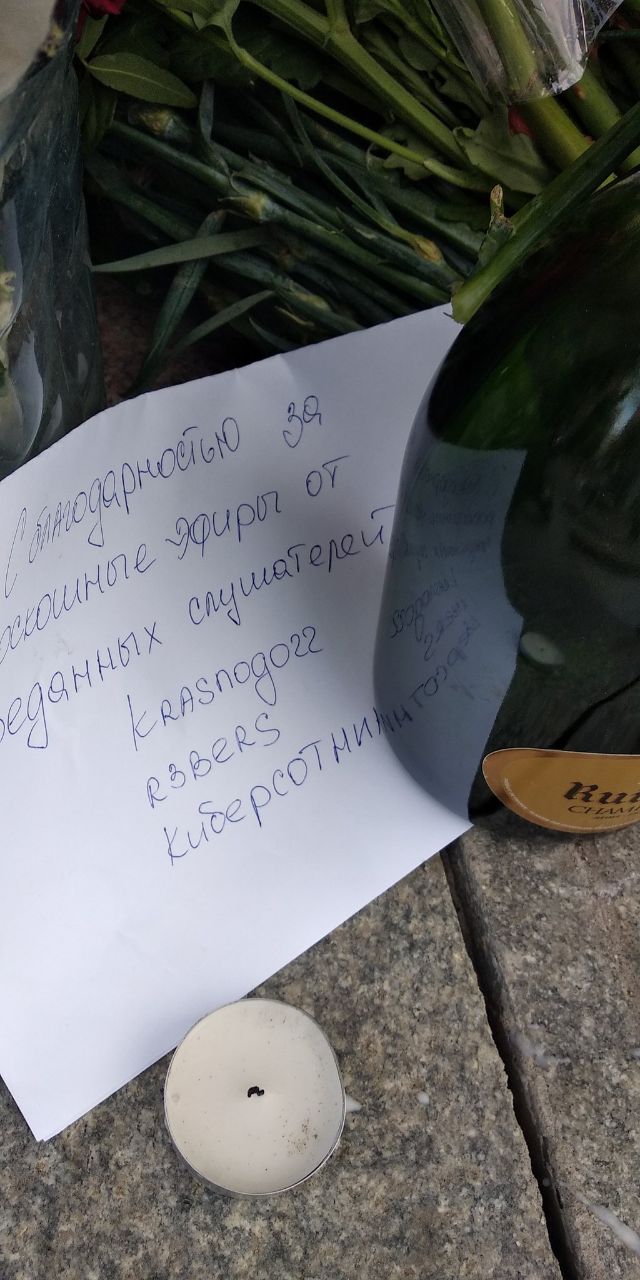 С благодарностью за
роскошные эфиры от
преданных слушателей
KRASnogo22
R3BERS
Киберсотни
Rui
CHAM